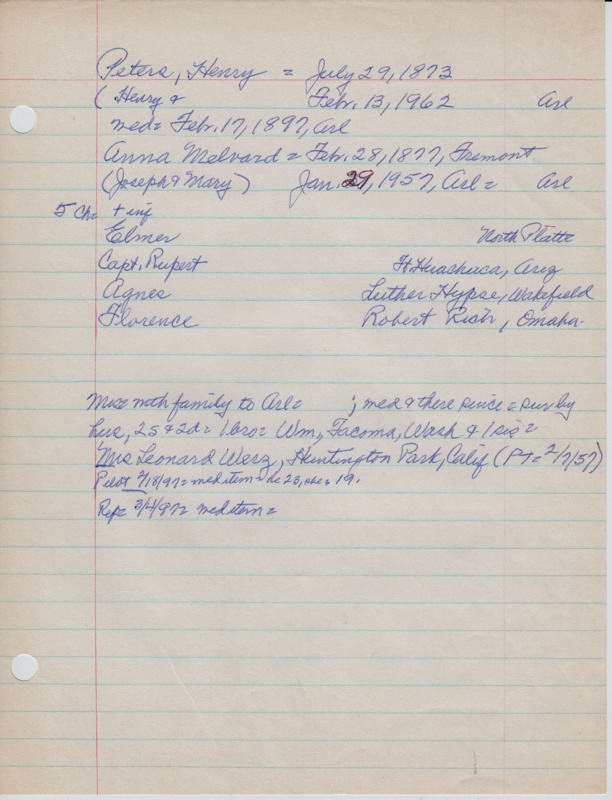 Peters, Henry = July 29, 1873
( Henry & Feb. 13, 1962 Arl
med= Feb. 17, 1897, Arl
Anna Melvard = Feb. 28, 1877, Fremont
(Joseph & Mary) Jan. 29, 1957, Arl = Arl
5 Ch= + inf
Elmer North Platte
Capt. Rupert Ft. Huachuca, Ariz
Agnes Luther Hypse, Wakefield
Florence Robert Rich, Omaha.
with family to Arl= ; med & there since = surv by
hus, 2s & 2d = 1 bro = Wm, Tacoma, Wash & 1 sis =
Mrs Leonard Werz, Huntington Park, Calif (PT= 2/7/57)
Pilot 2/18/97= med item = he 23, she = 19.
Rep= 97= med item =